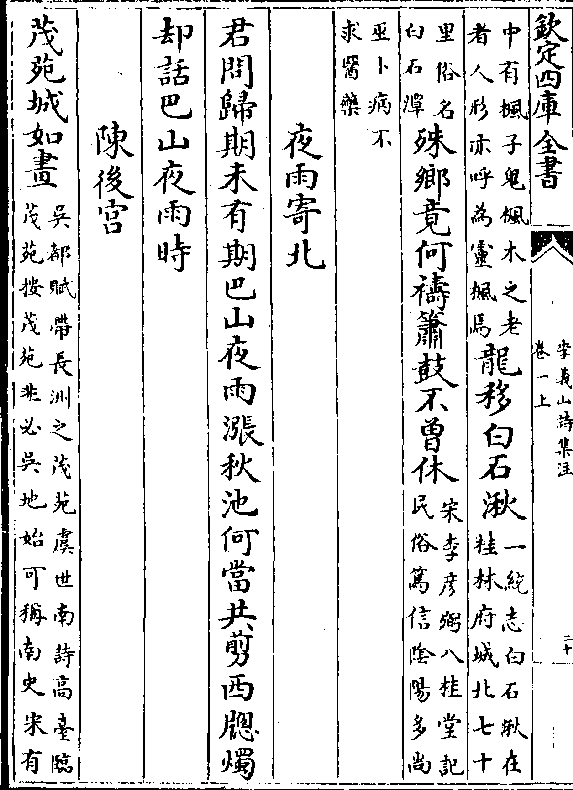 欽定四庫全書
李義山詩集注
卷一上
二十
中有楓子鬼楓木之老
者人形亦呼為靈楓焉
龍移白石湫
一統志白石湫在
桂林府城北七十
里俗名
白石潭
殊鄉竟何禱簫鼓不曾休
宋李彦弼八桂堂記
民俗篤信陰陽多尚
巫卜病不
求醫藥
夜雨寄北
君問歸期未有期巴山夜雨漲秋池何當共剪西窻燭
却話巴山夜雨時
陳後宮
茂苑城如畫
吳都賦帶長洲之茂苑虞世南詩高臺臨
茂苑按茂苑非必吳地始可稱南史宋有